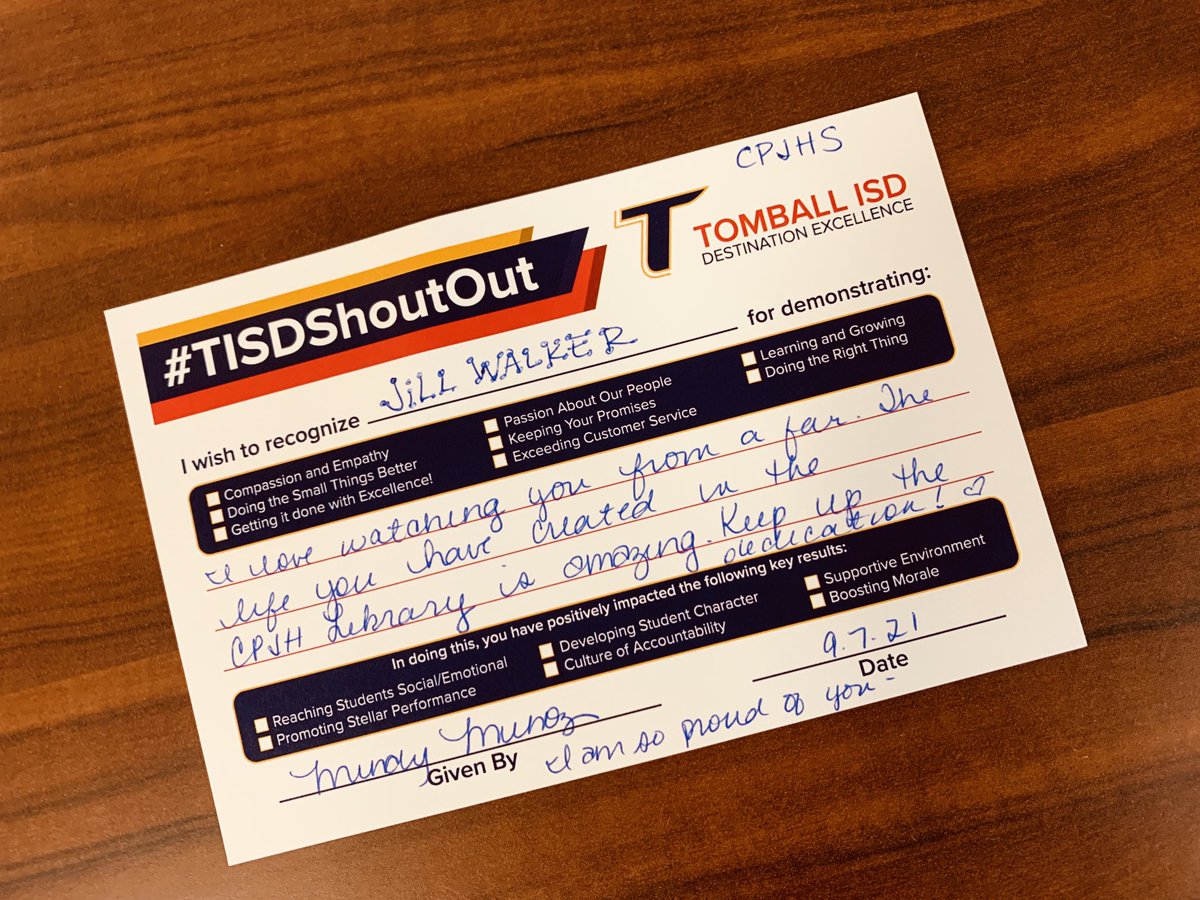 CPJHS
T TOMBALL ISD
DESTINATION EXCELLENCE
#TISDShoutOut
I wish to recognize JiLL WALKER for demonstrating:
Compassion and Empathy
Doing the Small Things Better
Getting it done with Excellence!
Passion About Our People
Keeping Your Promises
Exceeding Customer Service
Learning and Growing
Doing the Right Thing
I love watching you from a far. The
life you have created in the
CPJH Library is amazing. Keep up the
dedication! ♡
In doing this, you have positively impacted the following key results:
Reaching Students Social/Emotional
Promoting Stellar Performance
Developing Student Character
Culture of Accountability
Supportive Environment
Boosting Morale
Mindy Munoz
Given By
9.7.21
Date
I am so proud of you-